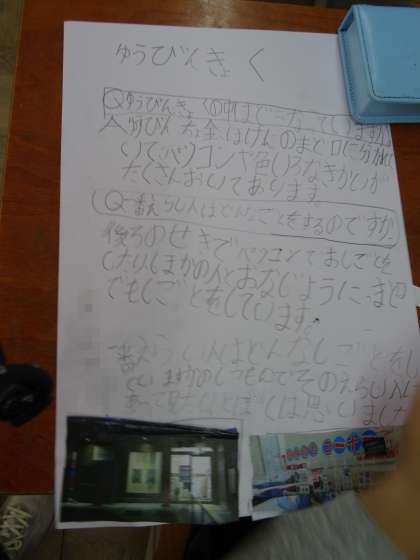 ゆうびんきょく
Qゆうびんきょくの中はどうなっていますか
Aゆうびん、ちょ金、ほけんのまど口に分かれて
いて、パソコンや色いろなきかいが
たくさんおいてあります
Q一番えらい人はどんなしごとをするのですか。
後ろのせきでパソコンでおしごとを
したり、ほかの人とおなじように、まど口
でもしごとをしています。
一番えらい人はどんなしごとをし
しつもんでそのえらい人
ぼくは思いました